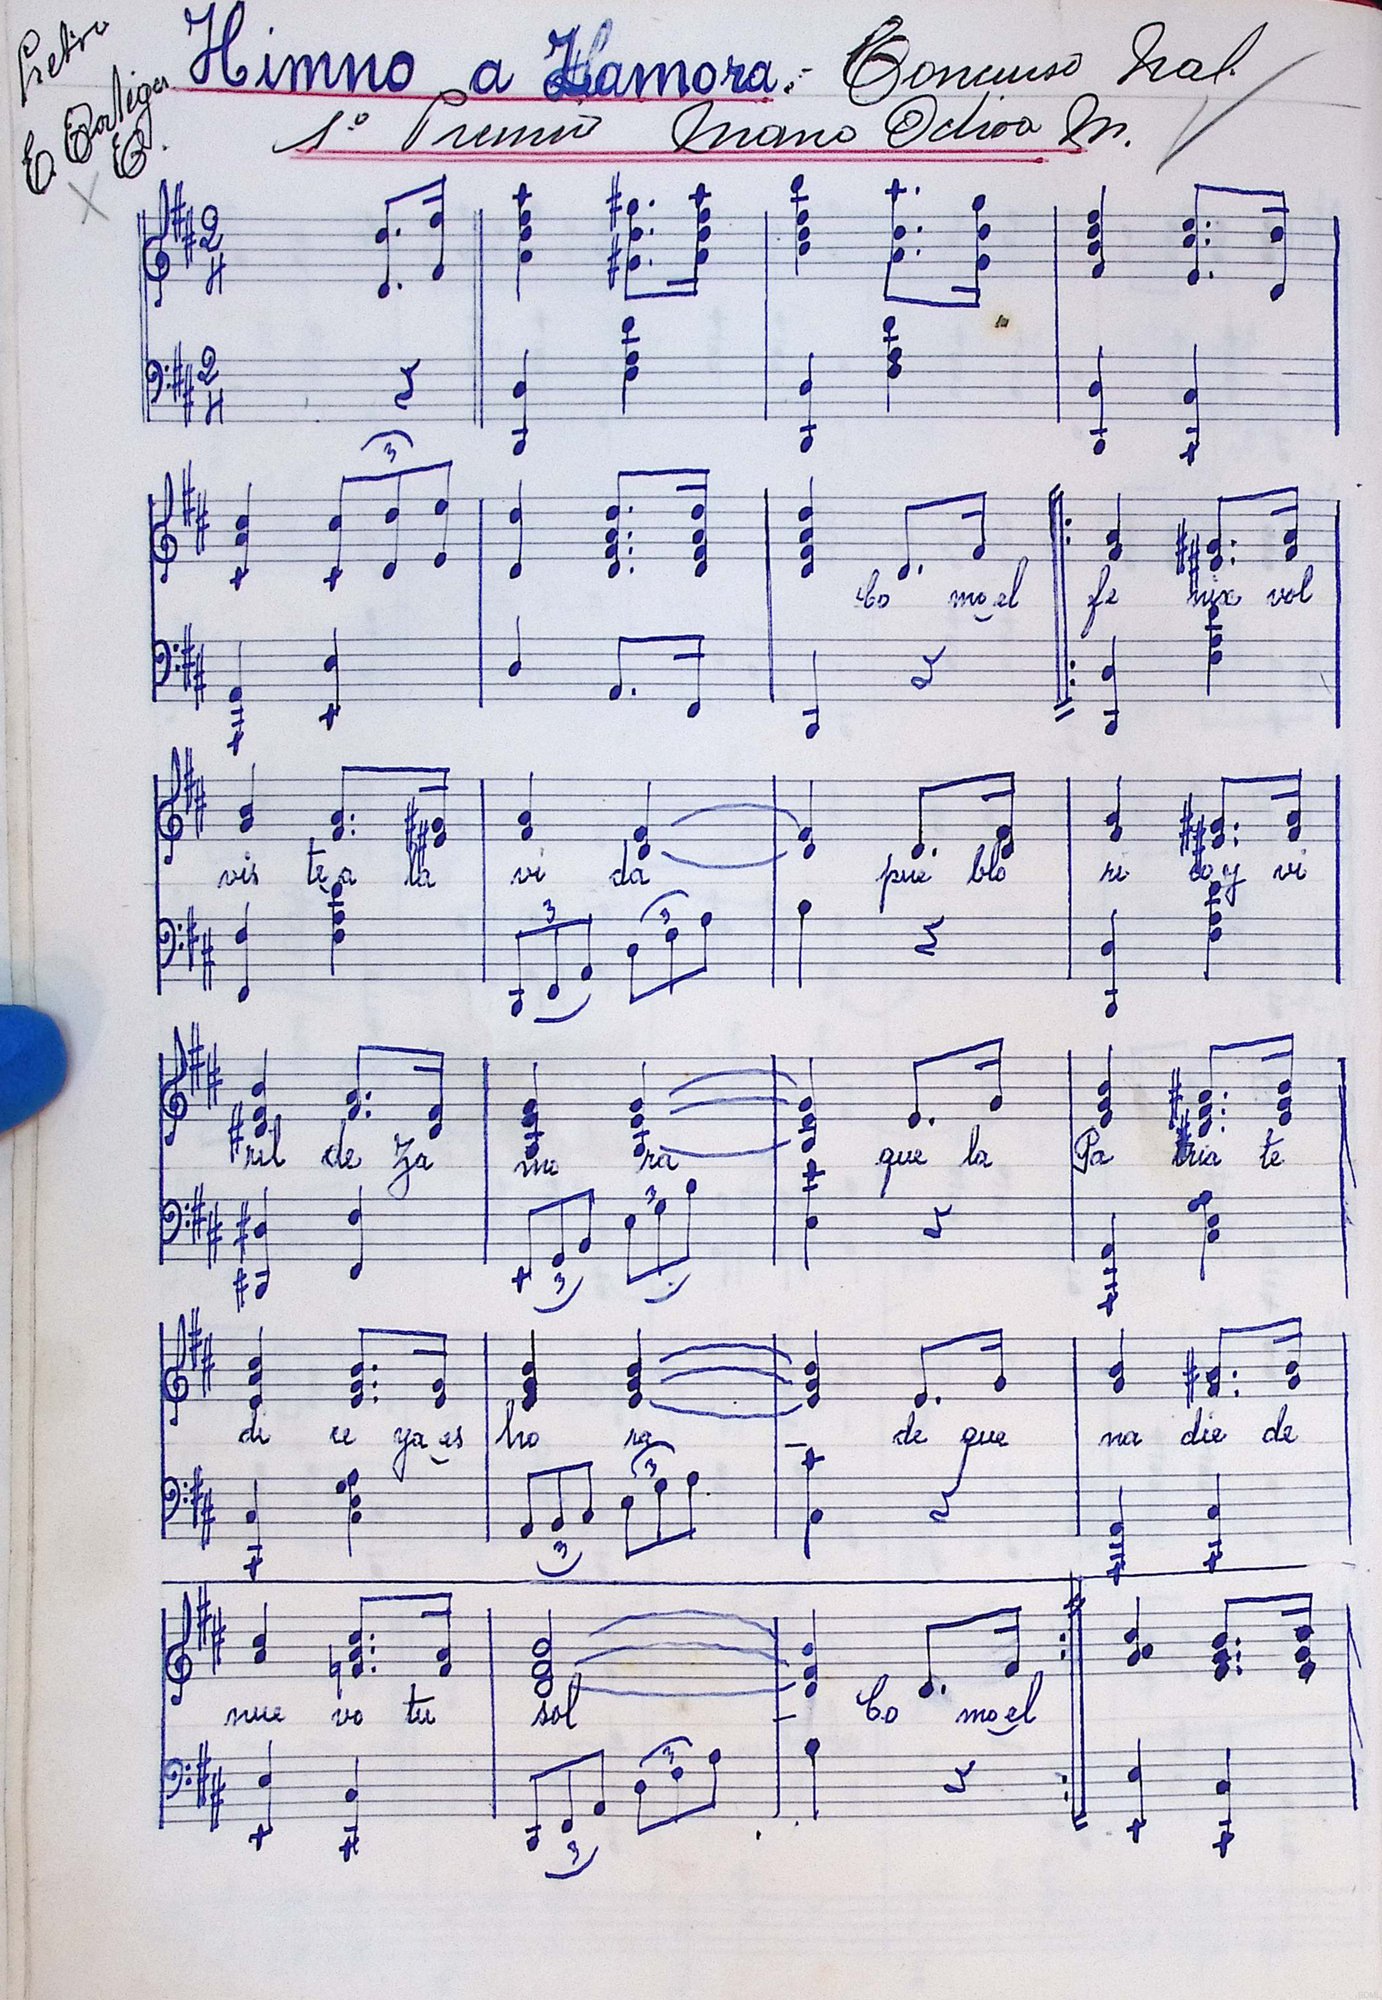 Himno a Zamora.- Concurso Nal.
1º Premio Mario Ochoa M.
2 4
2 4
3
Co mo el fe nix vol
vis te a la vi da pue blo ri co y vi
3 3
ril de Za mo ra que la Pa tria te
3 3
di ce ya es ho ra de que na die de
3 3
nue vo tu sol Co mo el
3 3